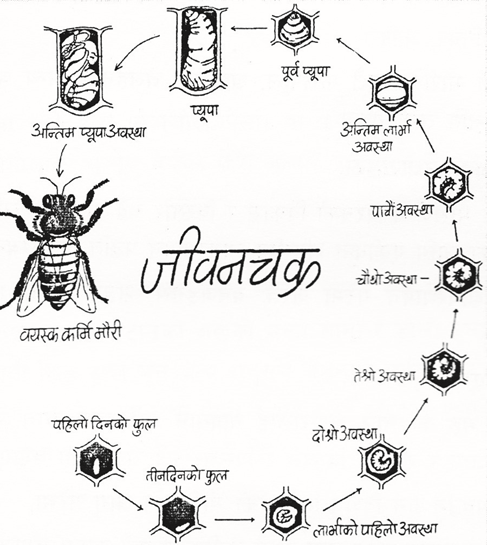 पूर्व प्यूपा
प्यूपा
अन्तिम प्यूपा अवस्था
अन्तिम लार्भा
अवस्था
पाचौं अवस्था
जीवनचक्र
चौथो अवस्था
वयस्क कर्मि मौरी
तेश्रो अवस्था
पहिलो दिनको फुल
दोश्रो अवस्था
तीन दिनको फुल
लार्भाको पहिलो अवस्था